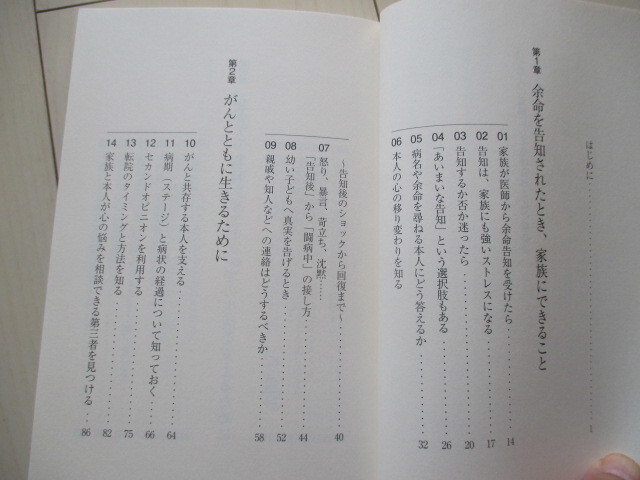 はじめに
第1章 余命を告知されたとき、家族にできること
01 家族が医師から余命告知を受けたら 14
02 告知は、家族にも強いストレスになる 17
03 告知するか否か迷ったら 20
04 「あいまいな告知」という選択肢もある 26
05 病名や余命を尋ねる本人にどう答えるか 32
06 本人の心の移り変わりを知る
～告知後のショックから回復まで～ 40
07 怒り、暴言、苛立ち、沈黙……
「告知後」から「闘病中」の接し方 44
08 幼い子どもへ真実を告げるとき 52
09 親戚や知人などへの連絡はどうするべきか 58
第2章 がんとともに生きるために
10 がんと共存する本人を支える 64
11 病期（ステージ）と病状の経過について知っておく 66
12 セカンドオピニオンを利用する 75
13 転院のタイミングと方法を知る 82
14 家族と本人が心の悩みを相談できる第三者を見つける 86